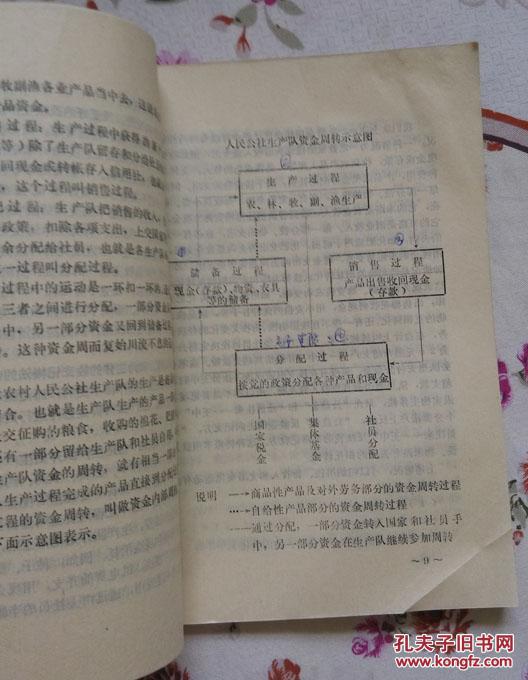 牧副渔各业产品当中去，这
品资金。
过程：生产过程中获得
等）除了生产队留存和分给社
回现金或转帐存入信用社，
，这个过程叫销售过程。
过程；生产队把销售的收入，
政策，扣除各项支出，上交国
余分配给社员，也就是各生产
一过程叫分配过程。
过程中的运动是一环扣一环
三者之间进行分配，一部分资
中，另一部分资金又回到储备过
。这种资金周而复始川流不息
农村人民公社生产队的生产是
合。也就是生产队生产的产品一
交征购的粮食，收购的棉花、
有一部分留给生产队和社员自
产队资金的周转，就有相当一
生产过程完成的产品直接到分配
程的资金周转，叫做资金内部
下面示意图表示。
人民公社生产队资金周转示意图
②
生产过程
农、林、牧、副、渔生产
①
储备过程
现金(存款)、物资、农具
等的储备
③
销售过程
产品出售收回现金
(存款)
④
分配过程
按党的政策分配各种产品和现金
国家税金
集体基金
社员分配
说明
——→商品性产品及对外劳务部分的资金周转过程
····→自给性产品部分的资金周转过程
——通过分配，一部分资金转入国家和社员手
中，另一部分资金在生产队继续参加周转
～9～
孔夫子旧书网
www.kongfz.com